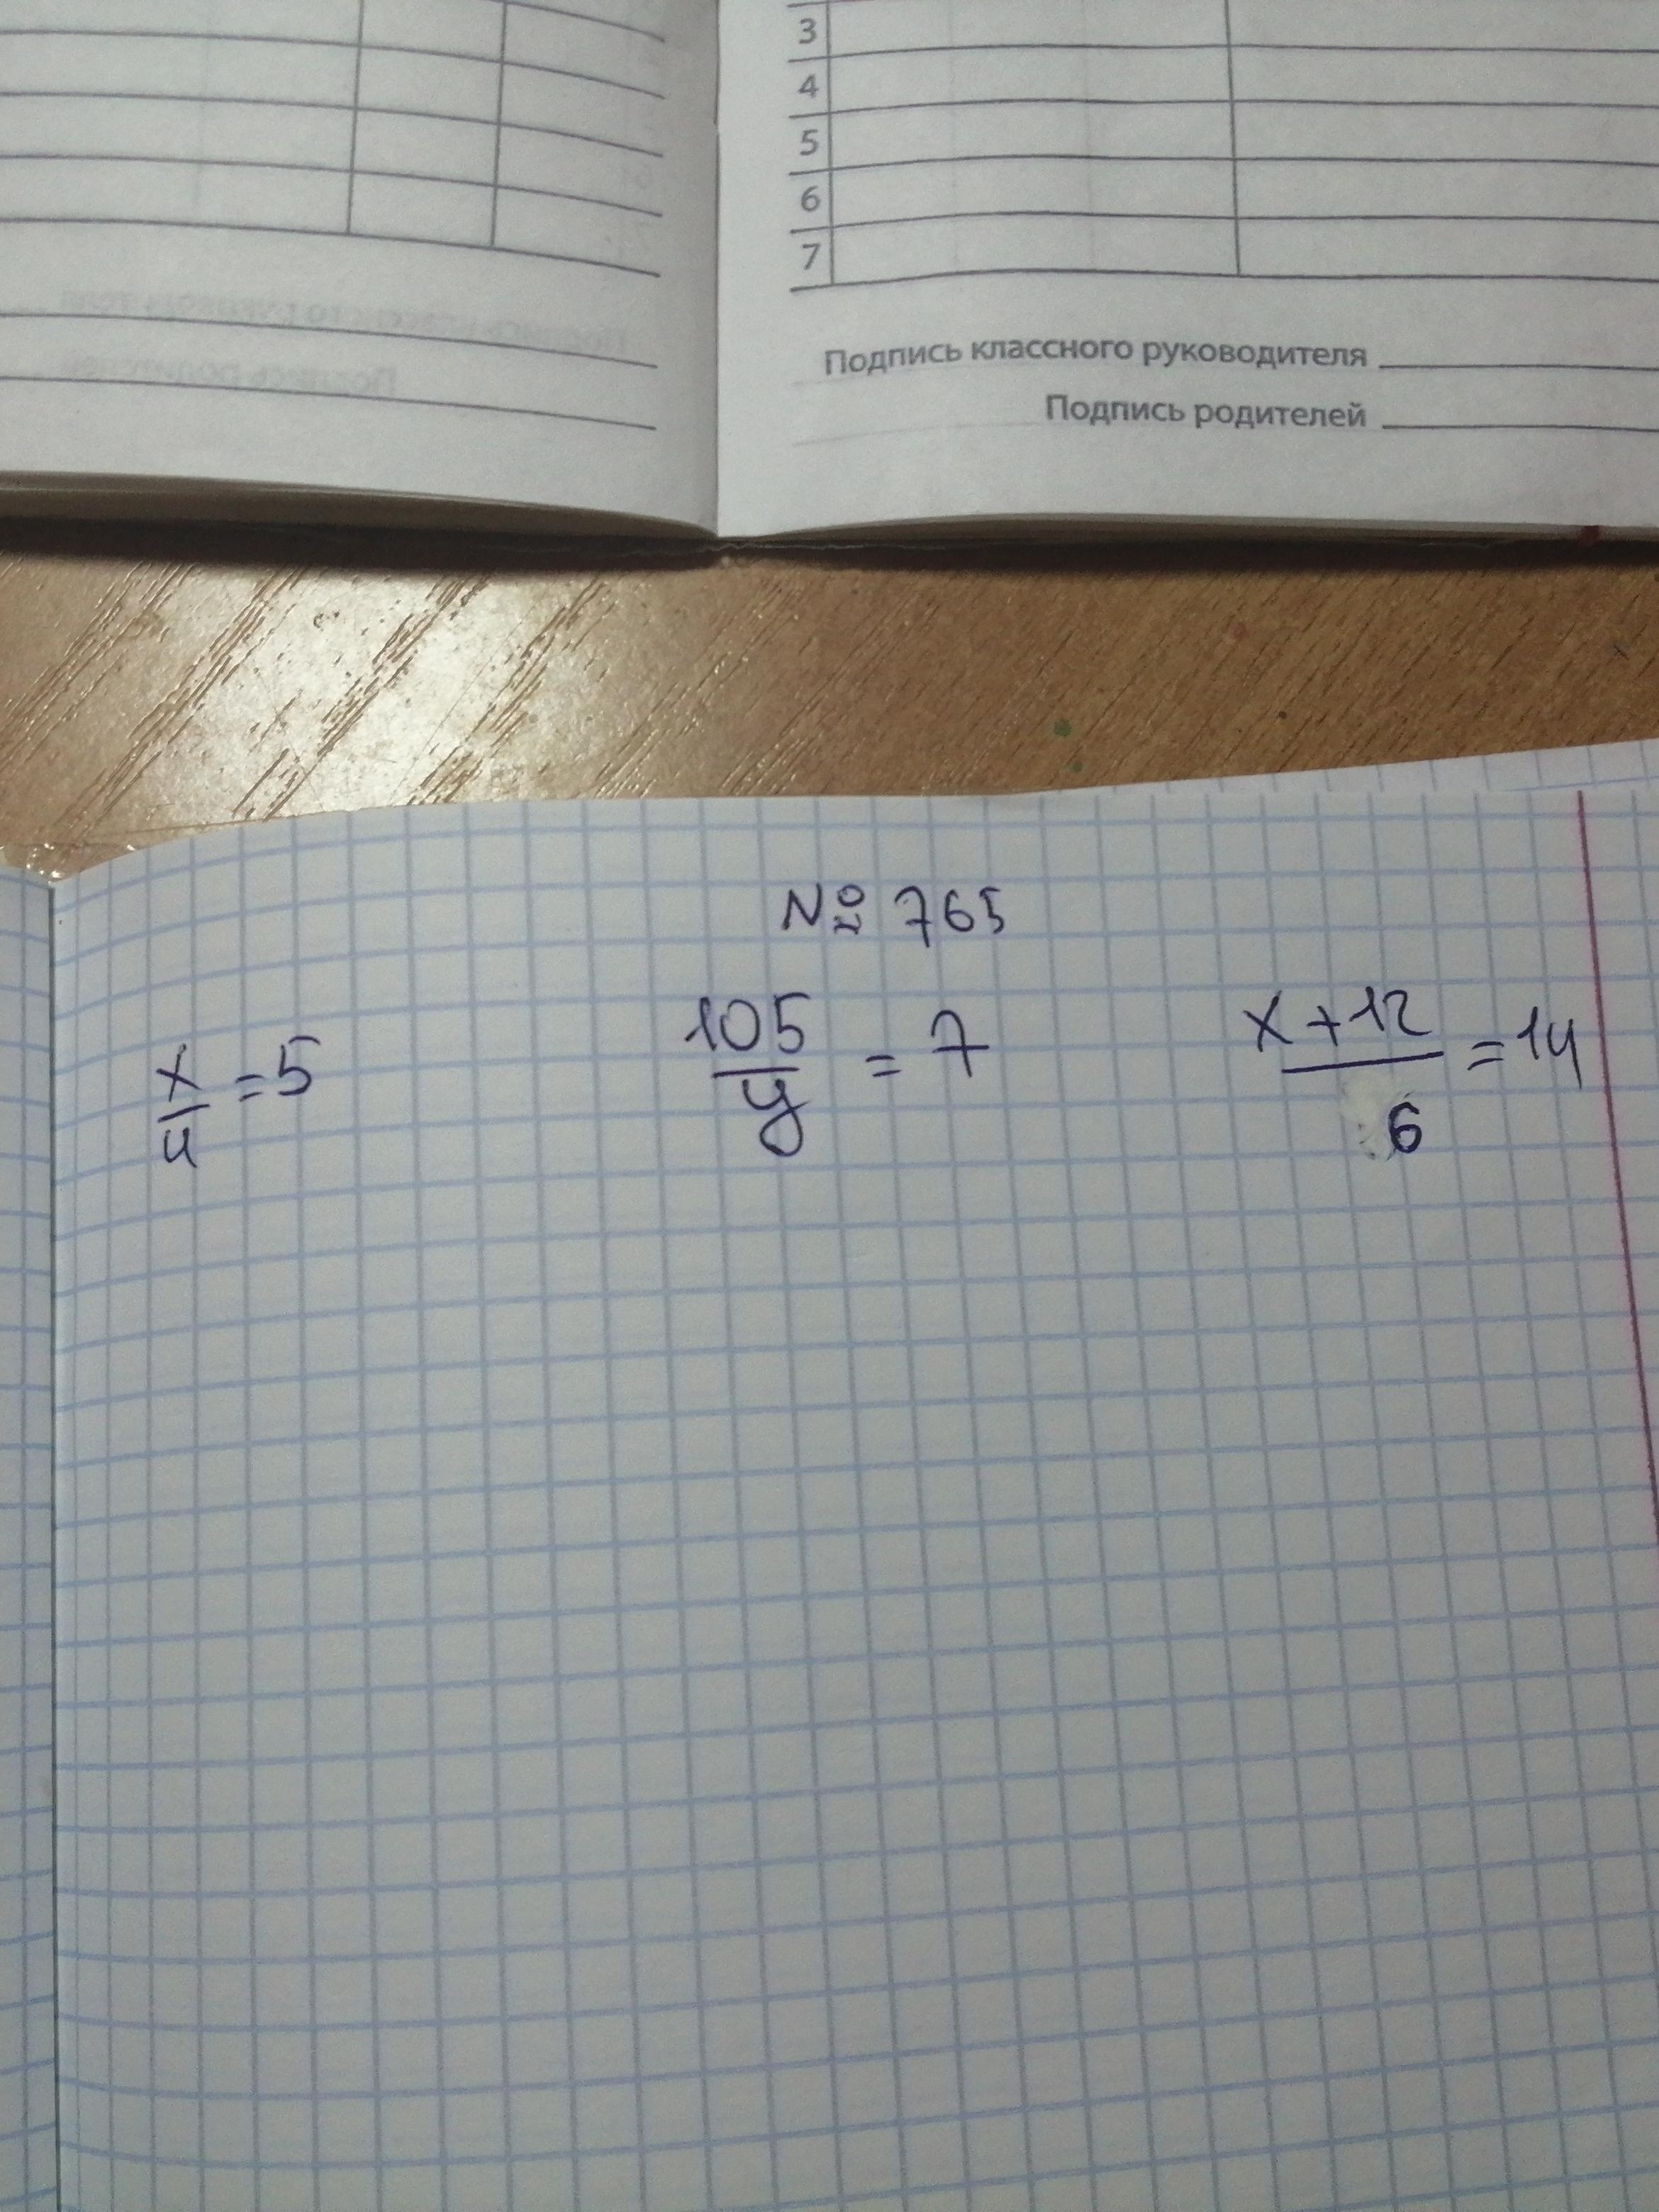 3
4
5
6
7
Подпись классного руководителя
Подпись родителей
№ 765
x/4 = 5 105/y = 7 x+12/6 = 14